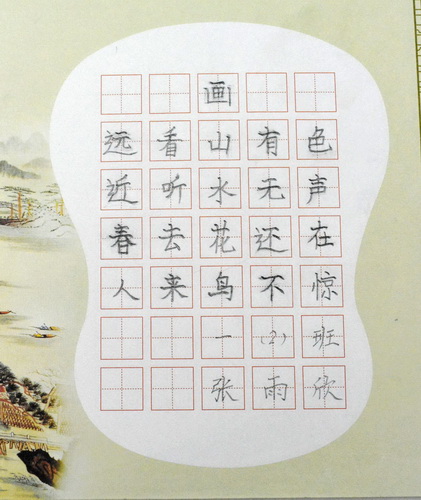 画
远看山有色
近听水无声
春去花还在
人来鸟不惊
一(2)班
张雨欣